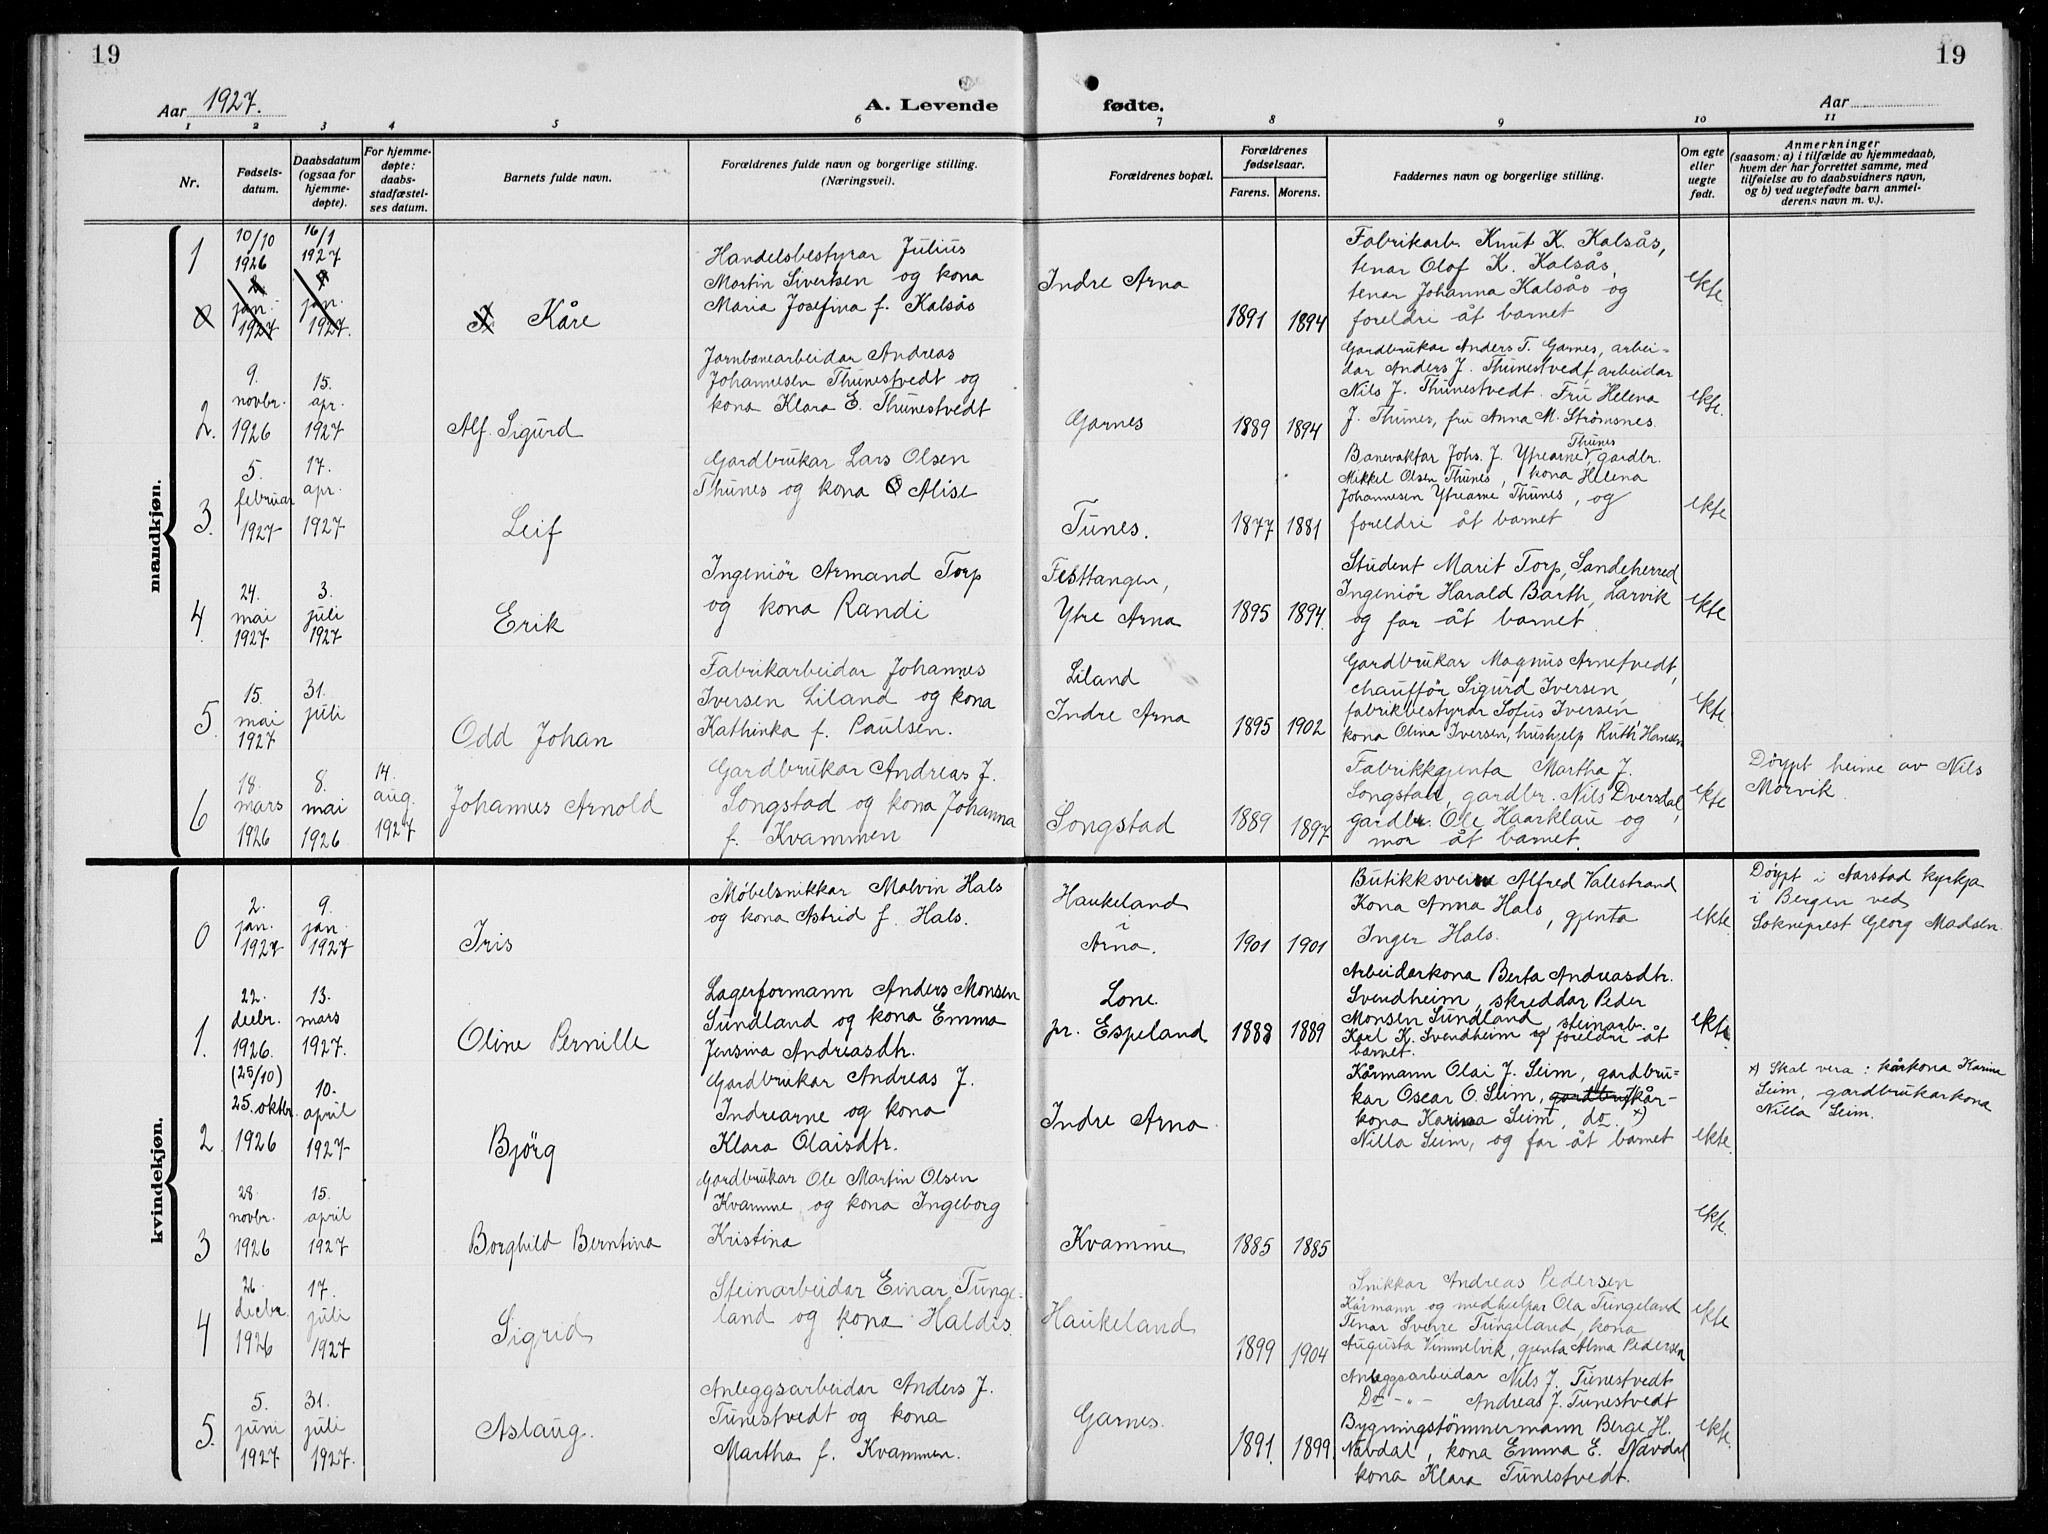 19
19
Aar 1927.
A. Levende fødte.
Aar
1 2 3 4 5 6 7 8 9 10 11
Nr.
Fødsels-
datum.
Daabsdatum
(ogsaa for
hjemme-
døpte).
For hjemme-
døpte:
daabs-
stadfæstel-
ses datum.
Barnets fulde navn.
Forældrenes fulde navn og borgerlige stilling.
(Næringsvei).
Forældrenes bopæl.
Forældrenes
fødselsaar.
Farens. Morens.
Faddernes navn og borgerlige stilling.
Om egte
eller
uegte
født.
Anmerkninger
(saasom: a) i tilfælde av hjemmedaab,
hvem der har forrettet samme, med
tilføielse av to daabsvidners navn,
og b) ved uegtefødte barn anmel-
derens navn m. v.).
mandkjøn.
1
10/10
1926
16/1
1927
0
2
jan.
1927
9
jan.
1927.
Kåre
Handelsbestyrar Julius
Martin Sivertsen og kona
Maria Josefina f. Kalsås
Indre Arna
1891 1894
Fabrikarb. Knut K. Kalsås,
tenar Olof K. Kalsås,
tenar Johanna Kalsås og
foreldri åt barnet
ekte.
2.
9.
novbr.
1926
15.
apr.
1927
Alf Sigurd
Jarnbanearbeidar Andreas
Johannesen Thunestvedt og
kona Klara E. Thunestvedt
Garnes
1889 1894
Gardbrukar Anders T. Garnes, arbei=
dar Anders J. Thunestvedt, arbeidar
Nils J. Thunestvedt. Fru Helena
J. Thunes, fru Anna M. Strømsnes.
ekte.
3.
5.
februar
1927
17.
apr.
1927
Leif
Gardbrukar Lars Olsen
Thunes og kona Alise
Tunes.
1877 1881
Thunes
Banevaktar Johs. J. Ytrearne gardbr.
Mikkel Olsen Thunes, kona Helena
Johannesen Ytrearne Thunes, og
foreldri åt barnet
ekte
4.
24.
mai
1927
3.
juli
1927
Erik
Ingeniör Armand Torp
og kona Randi
Festtangen,
Ytre Arna
1895 1894.
Student Marit Torp, Sandeherred
Ingeniör Harald Barth, Larvik
og far åt barnet.
ekte
5.
15.
mai
1927
31.
juli
Odd Johan
Fabrikarbeidar Johannes
Iversen Liland og kona
Kathinka f. Paulsen.
Liland
Indre Arna
1895 1902
Gardbrukar Magnus Arnetvedt,
chaufför Sigurd Iversen,
fabrikbestyrar Sofus Iversen
kona Olina Iversen, hushjelp Ruth Hansen
ekte.
6
18.
mars
1926
8.
mai
1926
14.
aug.
1927
Johannes Arnold
Gardbrukar Andreas J.
Songstad og kona Johanna
f. Kvammen
Songstad
1889 1897
Fabrikkgjenta Martha J.
Songstad, gardbr. Nils Dversdal,
gardbr. Ole Haarklau og
mor åt barnet.
ekte
Døypt heime av Nils
Morvik.
kvindekjøn.
0
2.
jan.
1927
9.
jan.
1927
Iris
Møbelsnikkar Malvin Hals
og kona Astrid f. Hals.
Haukeland
i
Arna.
1901 1901
Butikksvein Alfred Valestrand
Kona Anna Hals, gjenta
Inger Hals.
ekte.
Døypt i Aarstad kyrkja
i Bergen ved
Sokneprest Georg Madsen.
1.
22.
decbr.
1926.
13.
mars
1927.
Oline Pernille
Lagerformann Anders Monsen
Sundland og kona Emma
Jensina Andreasdtr.
Lone.
pr. Espeland
1888 1889
Arbeidarkona Berta Andreasdtr.
Svendheim, skreddar Peder
Monsen Sundland, steinarb.
Karl K. Svendheim og foreldri åt
barnet.
ekte.
2
(25/10)
25. oktbr.
1926
10.
april
1927
Bjørg
Gardbrukar Andreas J.
Indrearne og kona
Klara Olaisdtr.
Indre Arna.
Kårmann Olai J. Seim, gardbru=
kar Oscar O. Seim, gardbruk kår-
kona Karina Seim, do. x)
Nilla Seim, og far åt barnet
ekte.
x) Skal vera: kårkona Karina
Seim, gardbrukarkona
Nilla Seim.
3
28.
novbr.
1926
15.
april
1927
Borghild Berntina
Gardbrukar Ole Martin Olsen
Kvamme og kona Ingeborg
Kristina
Kvamme
1885 1885
ekte.
4
26.
decbr.
1926
17.
juli
1927
Sigrid
Steinarbeidar Einar Tunge=
land og kona Haldis.
Haukeland
1899 1904
Snikkar Andreas Pedersen
Kårmann og medhjelpar Ola Tungeland
Tenar Sverre Tungeland, kona
Augusta Vimmelvik, gjenta Alma Pedersen
ekte
5.
5.
juni
1927
31.
juli
1927.
Aslaug.
Anleggsarbeidar Anders J.
Tunestvedt og kona
Martha f. Kvammen.
Garnes.
1891 1899.
Anleggsarbeidar Nils J. Tunestvedt
Do -"- Andreas J. Tunestvedt
Bygningstömmermann Berge H.
Navdal, kona Emma E. Navdal
kona Klara Tunestvedt.
ekte.